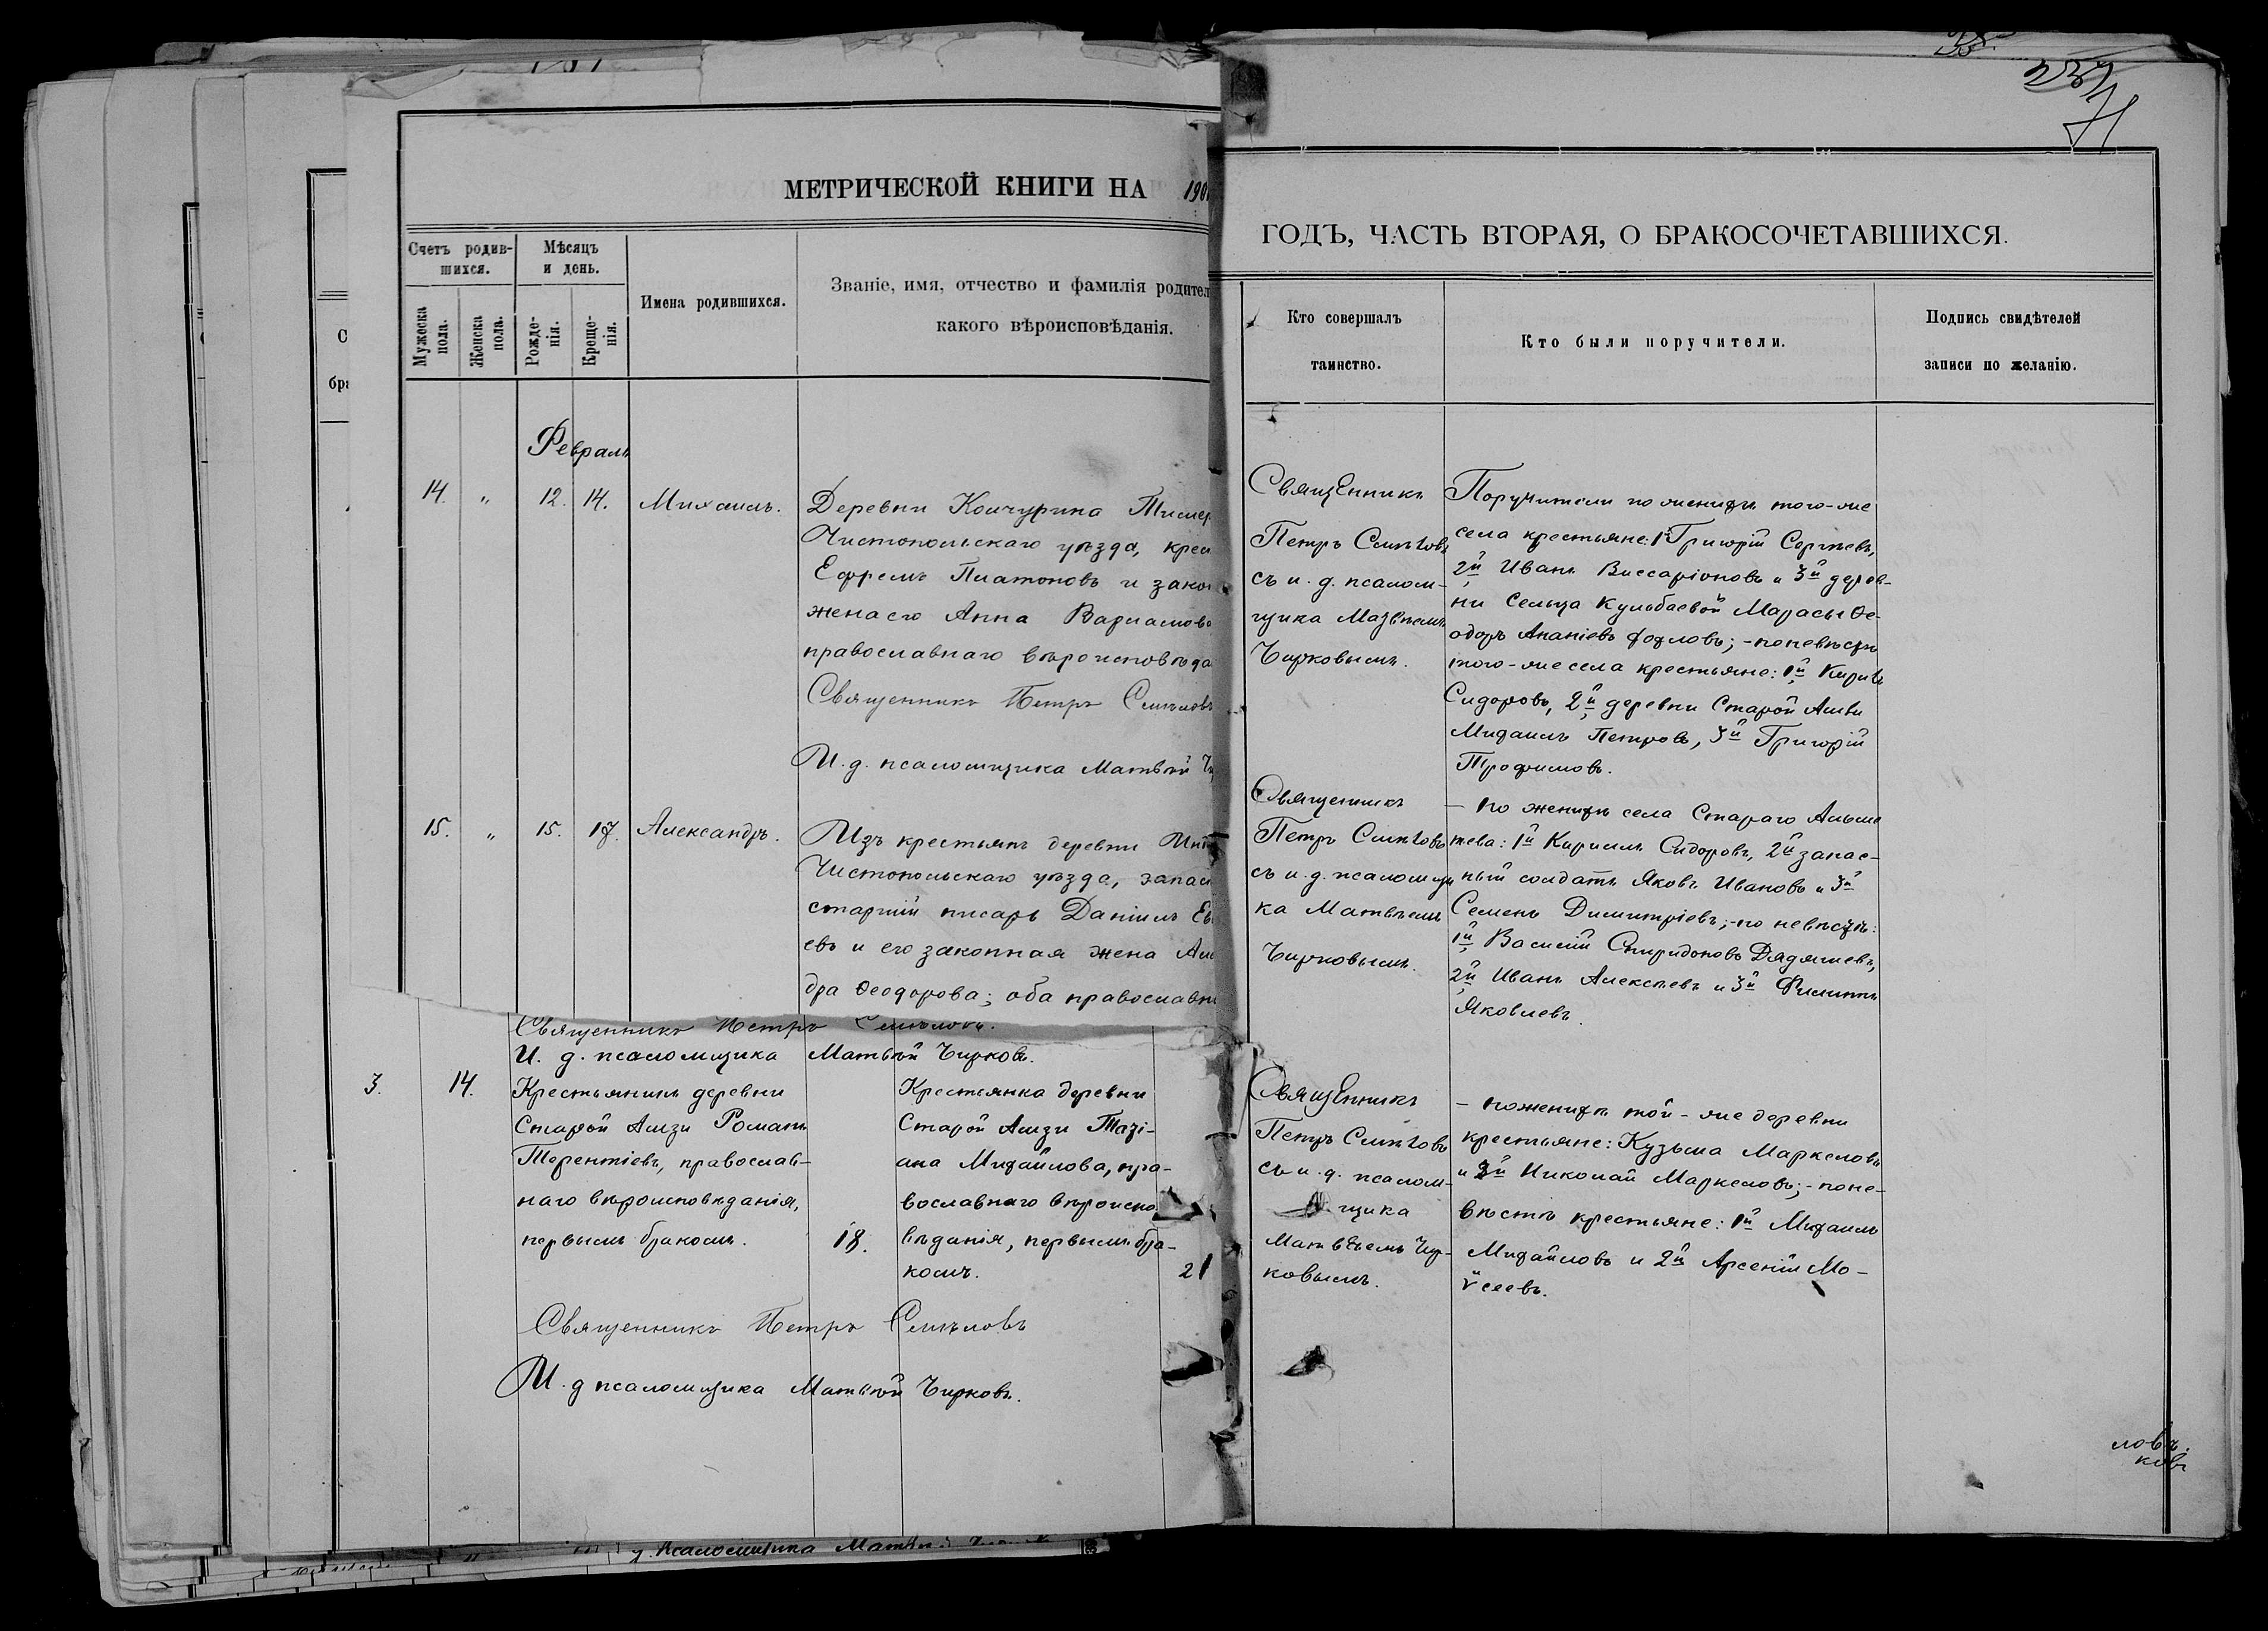 237
МЕТРИЧЕСКОЙ КНИГИ НА 190
Счетъ родив-
шихся.
Мѣсяцъ
и день.
Мужеска
пола.
Женска
пола.
Рожде-
нія.
Креще-
нія.
Имена родившихся.
Званіе, имя, отчество и фамилія родител
какого вѣроисповѣданія.
Февраль
14. " 12. 14. Михаилъ.
Деревни Кончурина Тимер
Чистопольскаго уѣзда, крес
Ефремъ Платоновъ и закон
жена его Анна Варламова
православнаго вѣроисповѣда
Священникъ Петръ Смѣловъ
И. д. псаломщика Матвѣй Чи
15. " 15. 17. Александръ.
Изъ крестьянъ деревни
Чистопольскаго уѣзда, запас
старшій писарь Даніилъ Ев
евъ и его законная жена Алек
дра Ѳеодорова; оба православн
Священникъ Петръ Смѣловъ.
И. д. псаломщика Матвѣй Чирковъ.
3. 14.
Крестьянинъ деревни
Старой Амзи Романъ
Терентіевъ, православ-
наго вѣроисповѣданія,
первымъ бракомъ.
18.
Крестьянка деревни
Старой Амзи Тазі-
ана Михайлова, пра-
вославнаго вѣроиспо
вѣданія, первымъ бра-
комъ.
21
Священникъ Петръ Смѣловъ
И. д псаломщика Матвѣй Чирковъ.
ГОДЪ, ЧАСТЬ ВТОРАЯ, О БРАКОСОЧЕТАВШИХСЯ.
Кто совершалъ
таинство.
Кто были поручители.
Подпись свидѣтелей
записи по желанію.
Священникъ
Петръ Смѣловъ
съ и. д. псалом-
щика Матвѣемъ
Чирковымъ.
Поручители по женихѣ того-же
села крестьяне: 1й Григорій Сергѣевъ,
2й Иванъ Виссаріоновъ и 3й дерев-
ни Сельца Кульбаевой Марасы Ѳе-
одоръ Ананіевъ; - по невѣстѣ
того-же села крестьяне: 1й Кирилъ
Сидоровъ, 2й деревни Старой Амзи
Михаилъ Петровъ, 3й Григорій
Трофимовъ.
Священникъ
Петръ Смѣловъ
съ и. д. псаломщи
ка Матвѣемъ
Чирковымъ.
- по женихѣ села Стараго Альме
тева: 1й Кириллъ Сидоровъ, 2й запас-
ный солдатъ Яковъ Ивановъ и 3й
Семенъ Димитріевъ; - по невѣстѣ:
1й Василій Спиридоновъ Дядяшевъ,
2й Иванъ Алексѣевъ и 3й Филиппъ
Яковлевъ.
Священникъ
Петръ Смѣловъ
съ и. д. псалом-
щика
Матвѣемъ Чир-
ковымъ.
- по женихѣ той-же деревни
крестьяне: Кузьма Маркеловъ
и 2й Николай Маркеловъ; - по не-
вѣстѣ крестьяне: 1й Михаилъ
Михайловъ и 2й Арсеній Мо-
ѵсеевъ.
ловъ.
ковъ